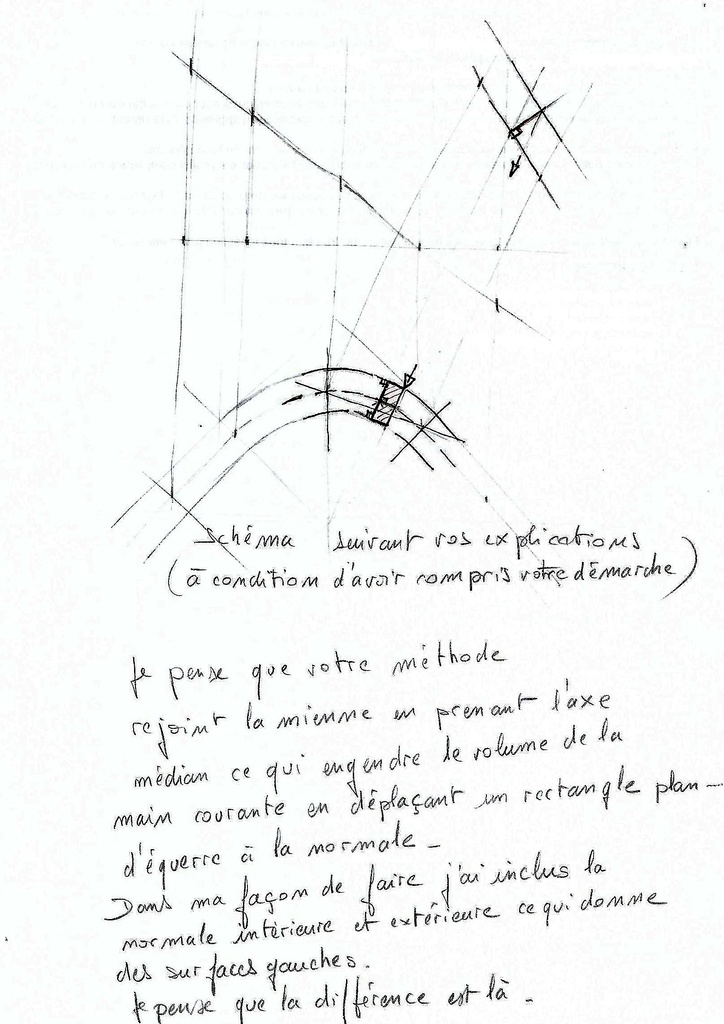 schéma suivant vos explications
(à condition d'avoir compris votre démarche)
Je pense que votre méthode
rejoint la mienne en prenant l'axe
médian ce qui engendre le volume de la
main courante en déplaçant un rectangle plan -
d'équerre à la normale -
Dans ma façon de faire j'ai inclus la
normale intérieure et extérieure ce qui donne
des surfaces gauches.
Je pense que la différence est là -